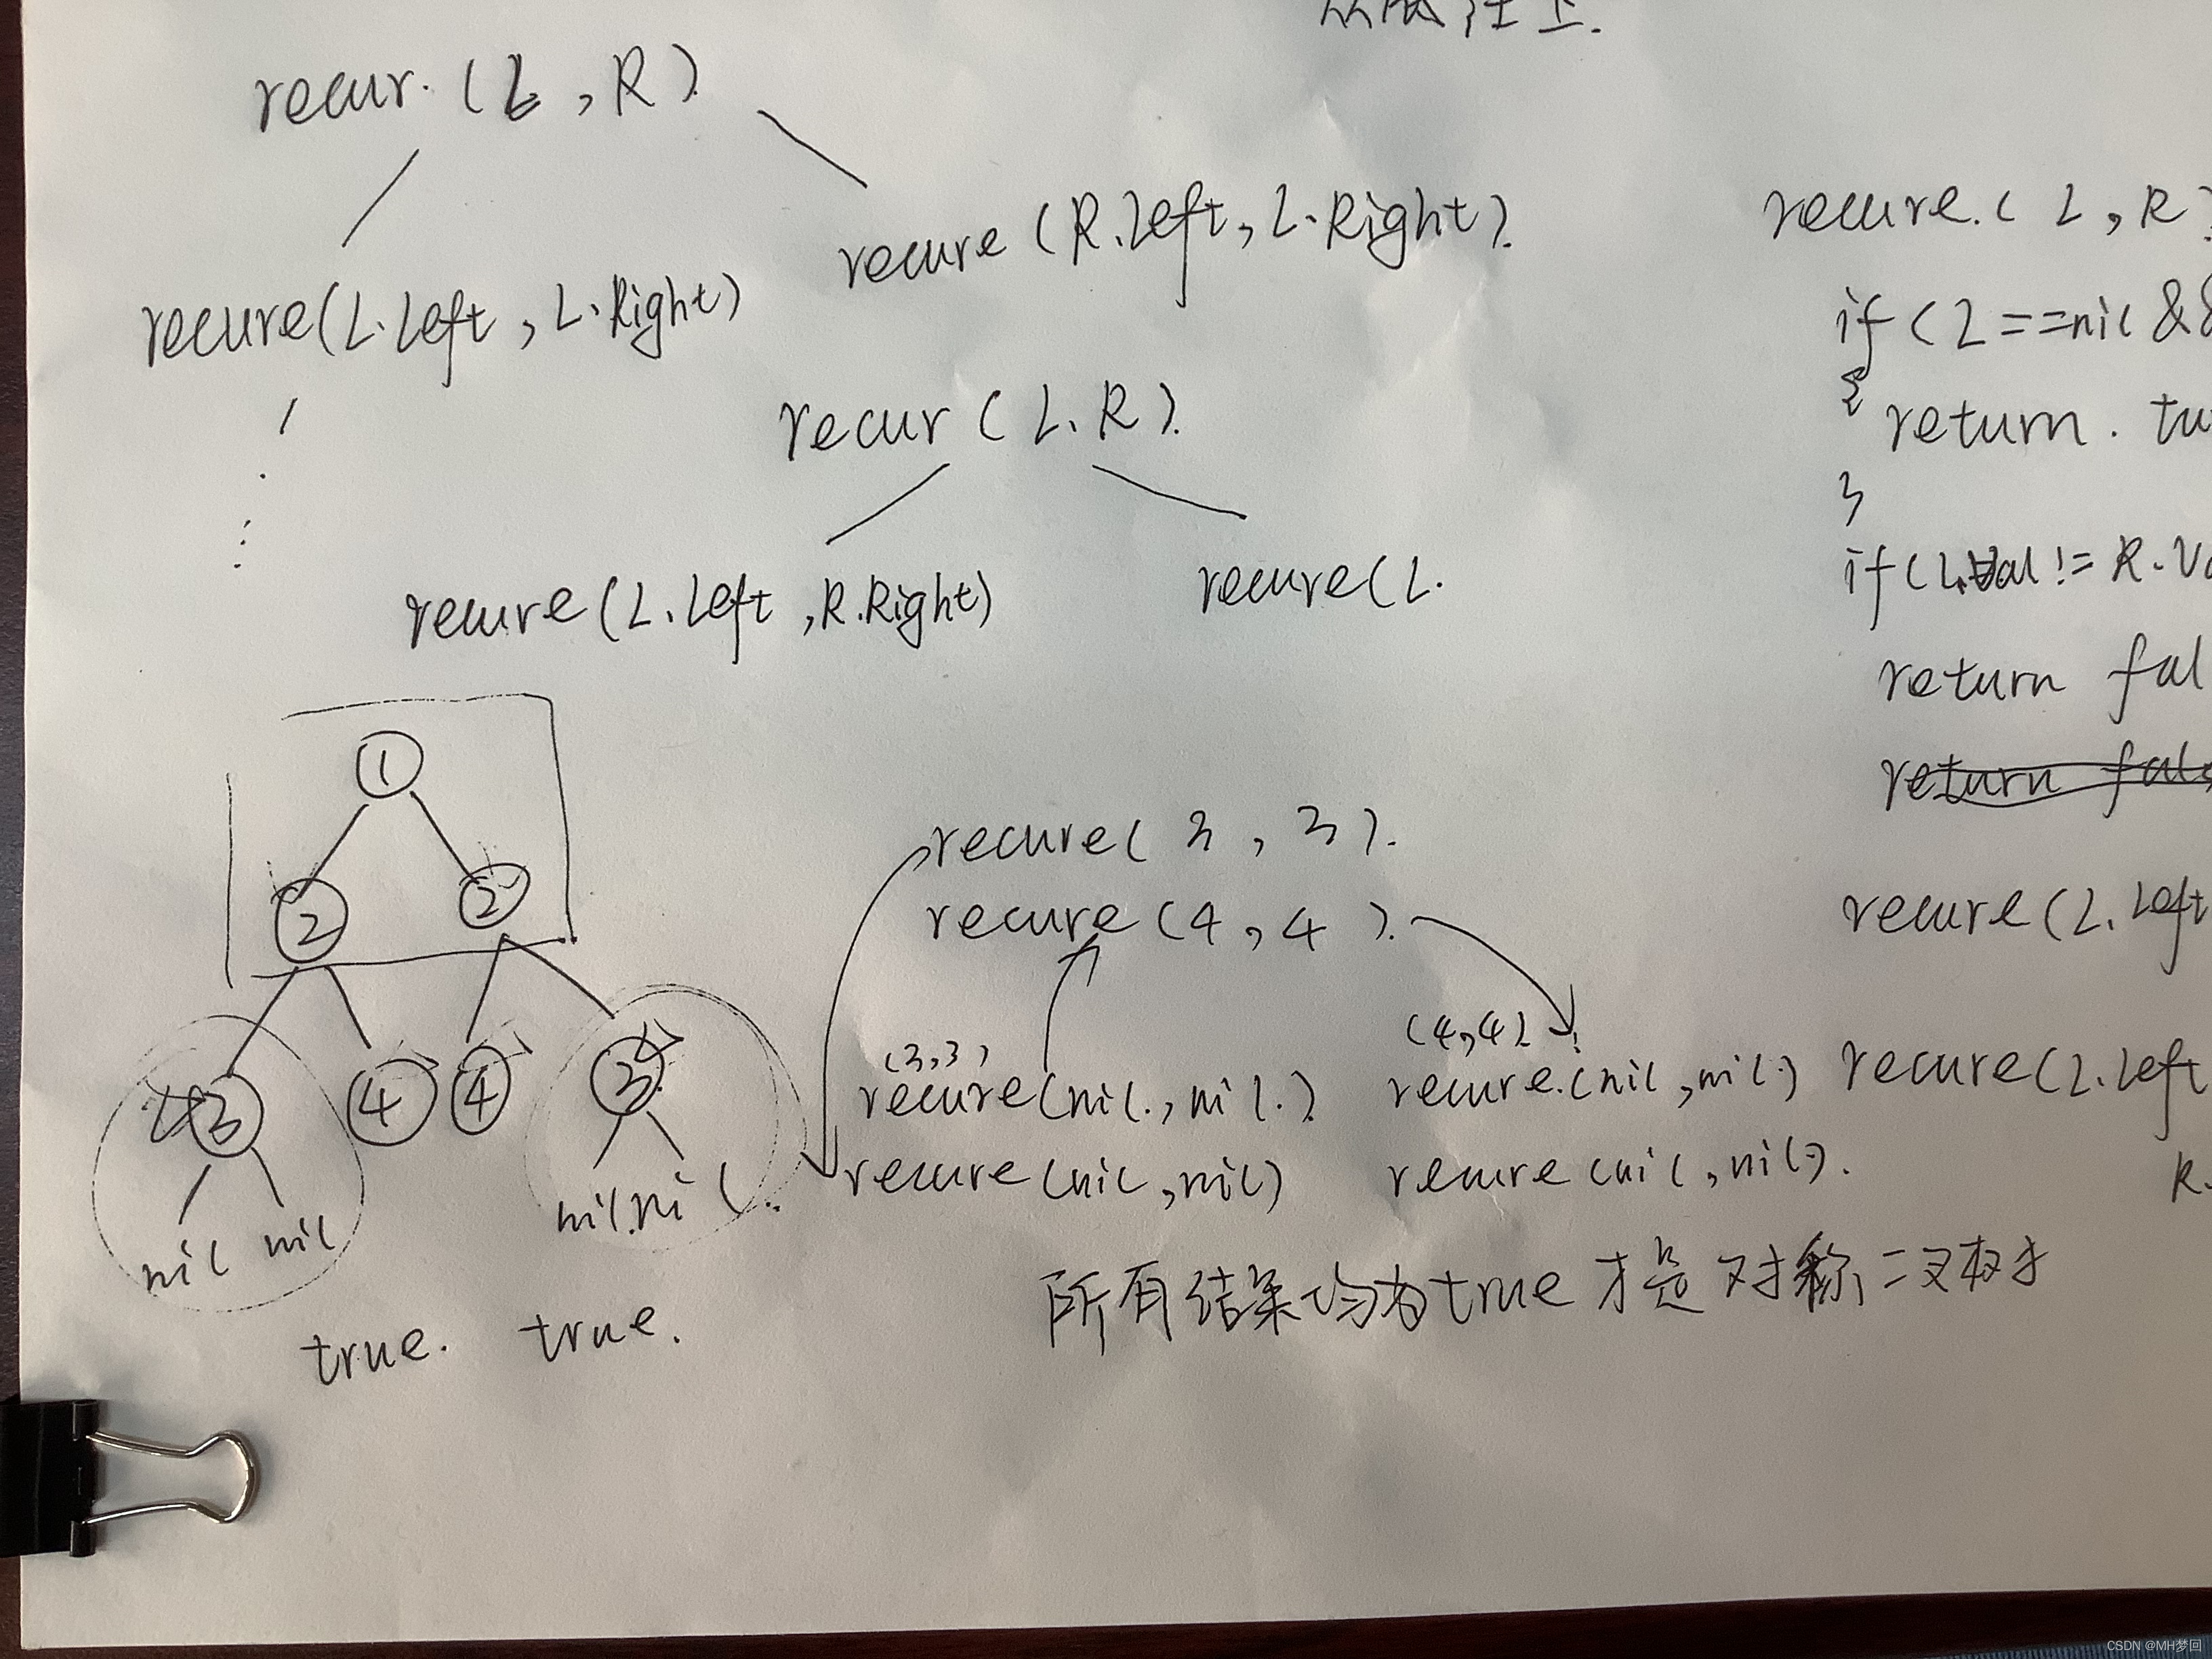 recur. (L, R)
recure (R.Left, L.Right).
recure(L.Left, L.Right)
recur (L.R).
recure(L.Left, R.Right)
recure(L.
1
2 2
3 4 4 3
nil nil
nil. nil
true. true.
recure( 3, 3).
recure (4, 4).
(3,3)
recure(nil., nil.).
recure(nil, nil)
(4,4)
recure.(nil, nil.)
recure(nil, nil).
所有结果均为true才是对称二叉树
recure.( L, R)
if (L==nil &&
{
return.
}
if (L.Val != R.Va
return fal
return fals
recure(L.Left
recure(L.Left
R.
CSDN @MH梦回